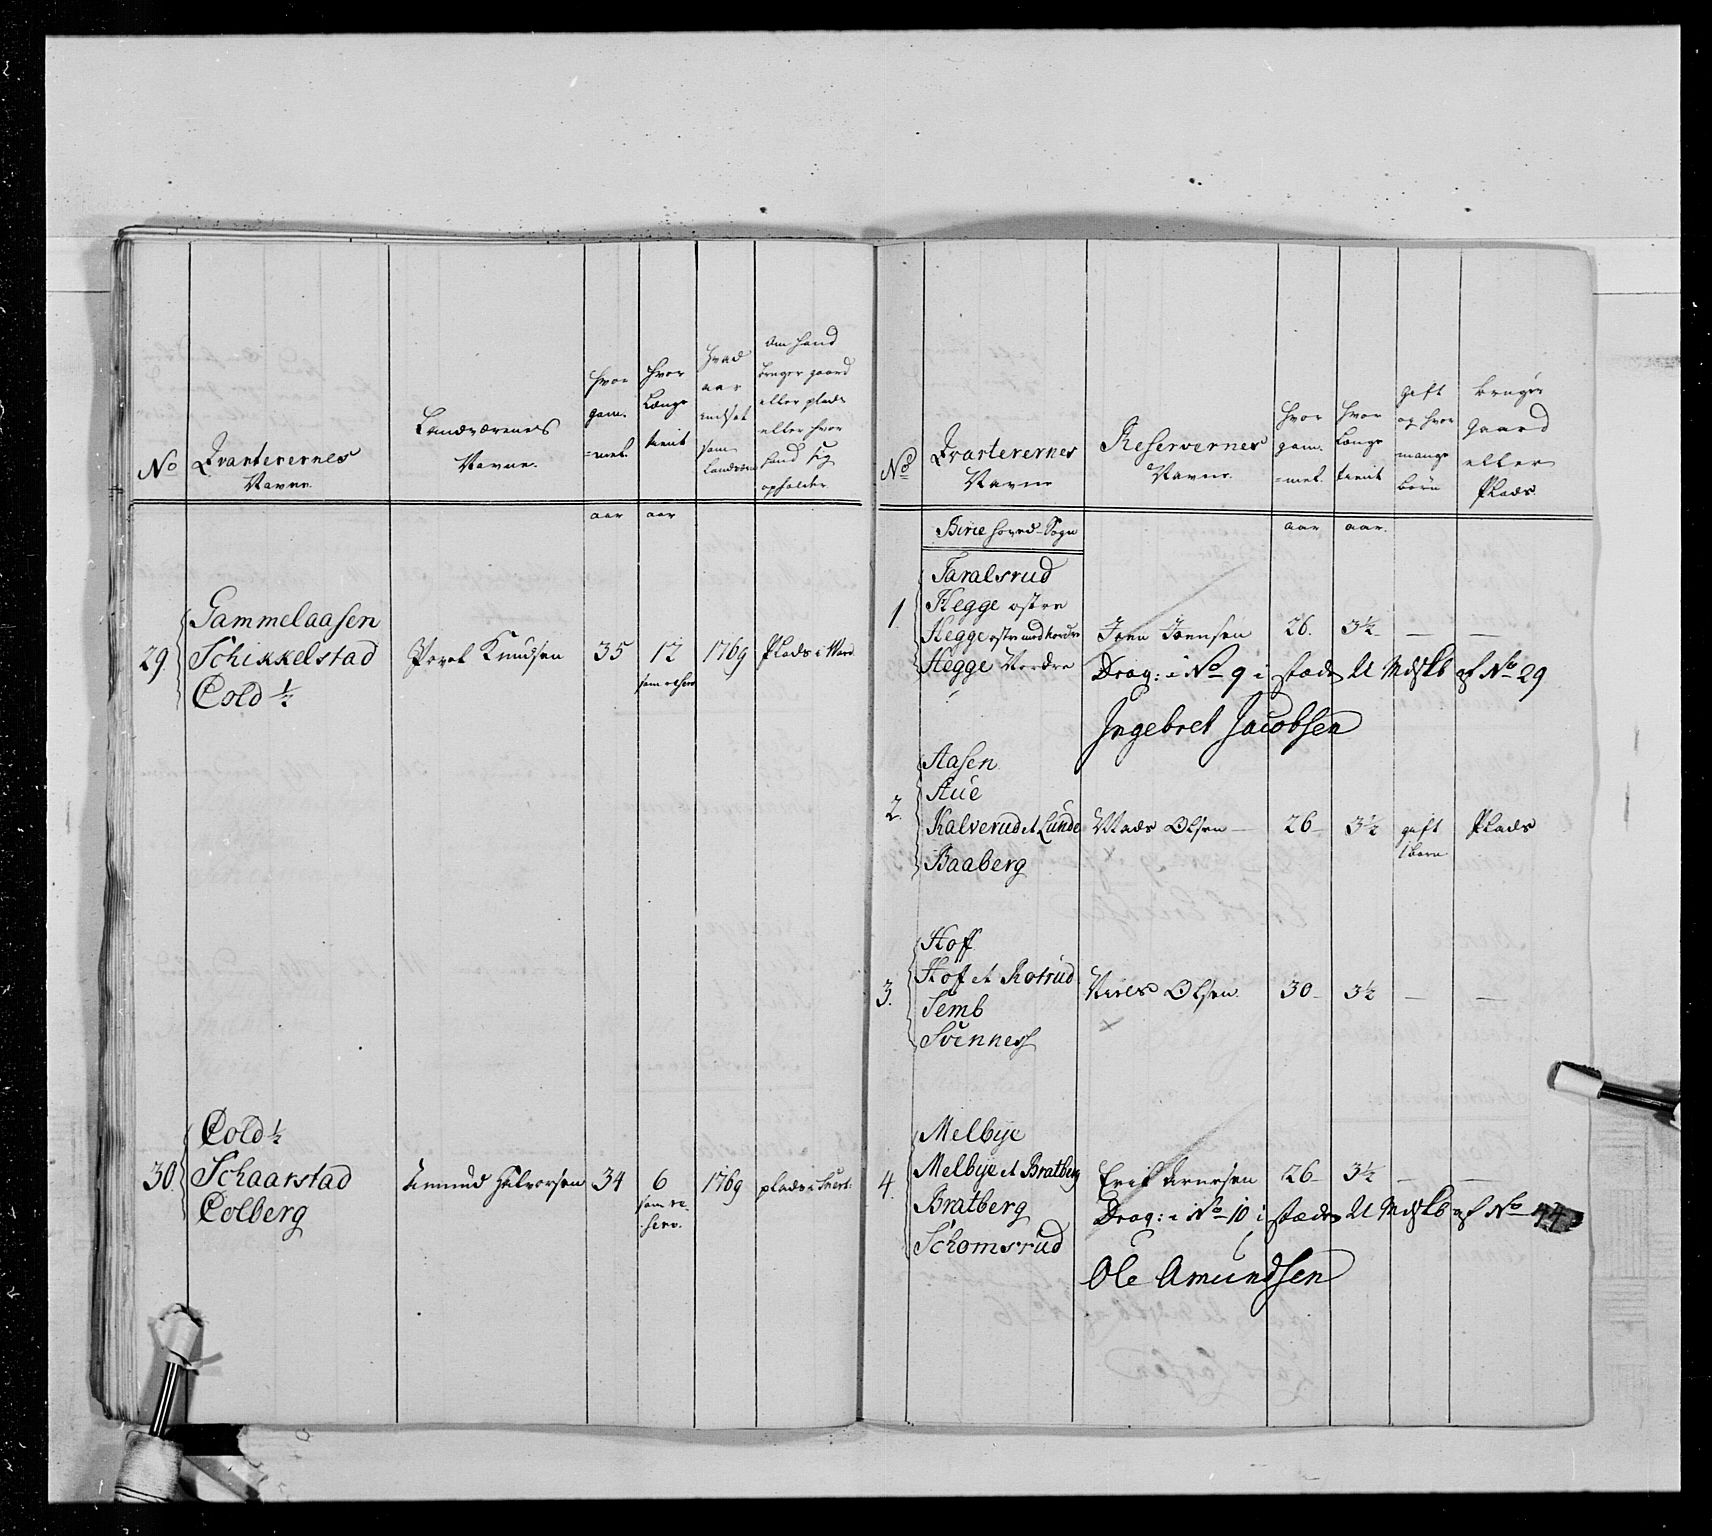 No
Qvarterernes
Navne.
Landværenes
Navne.
hvor
gam-
=mel.
hvor
Længe
tient
hvad
aar
indsat
som
Landværn
om hand
bruger gaard
eller plads
eller hvor
hand sig
opholder
aar aar
29
Gammelaasen
Schikkelstad
Cold ½
Povel Knudsen 35 12 1769 Plads i
som reserv
30.
Cold ½
Schaarstad
Colberg
Amund Halvorsen 34 6 1769 plads i
som re-
serv.
No
Qvarterernes
Navne
Reservernes
Navne.
hvor
gam-
=mel.
hvor
Længe
tient
gift
og hvor
mange
børn
bruger
gaard
eller
Plads.
Birie hoved-Sogn
aar aar.
1.
Taralsrud
Hegge østre
Hegge østre med Nordre
Hegge Nordre
Joen Joensen 26. 3½ — —
Drag: i No 9 i stæden U Mdskb af No 29
Ingebret Jacobsen
2.
Aasen
Aue
Kalverud et Lunde
Baaberg
Mads Olsen — 26 — 3½ gift Plads
1 barn
3.
Hoff
Hof et Rotrud
Semb
Svennes
Niels Olsen. 30 — 3½ — —
4.
Melbye
Melbye et Bratberg
Bratberg
Schomsrud
Erik Arnesen 26 — 3½ — —
Drag: i No 10 i stæden U Mdskb af No 44
Ole Amundsen